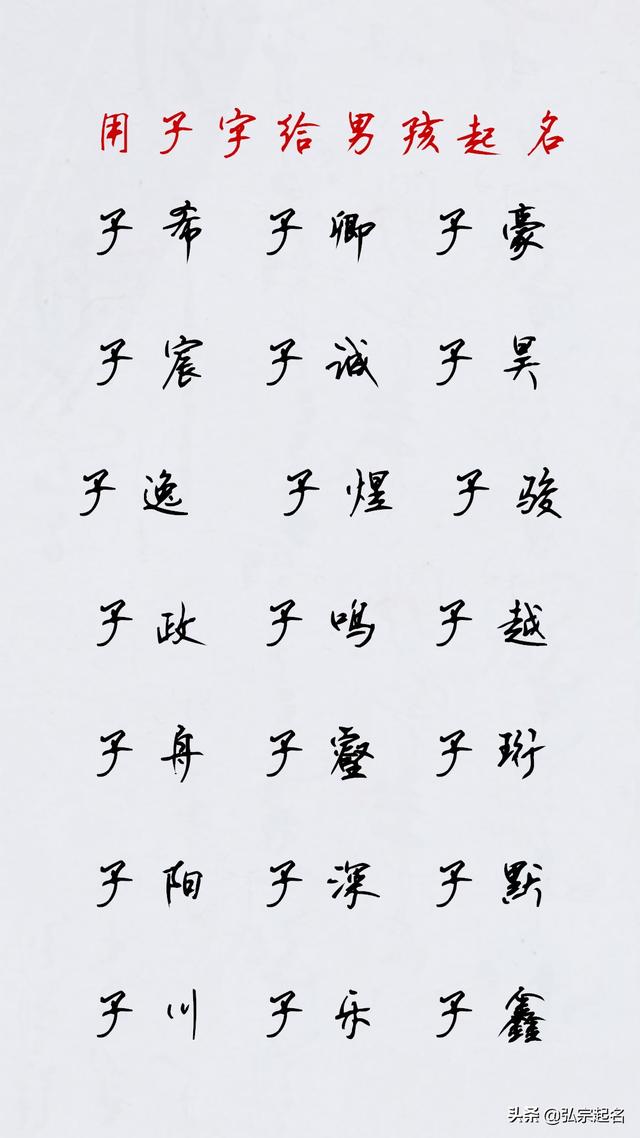 用子字给男孩起名
子希 子卿 子豪
子宸 子诚 子昊
子逸 子煜 子骏
子政 子鸣 子越
子舟 子壑 子珩
子阳 子深 子默
子川 子乐 子鑫
头条 @弘宗起名